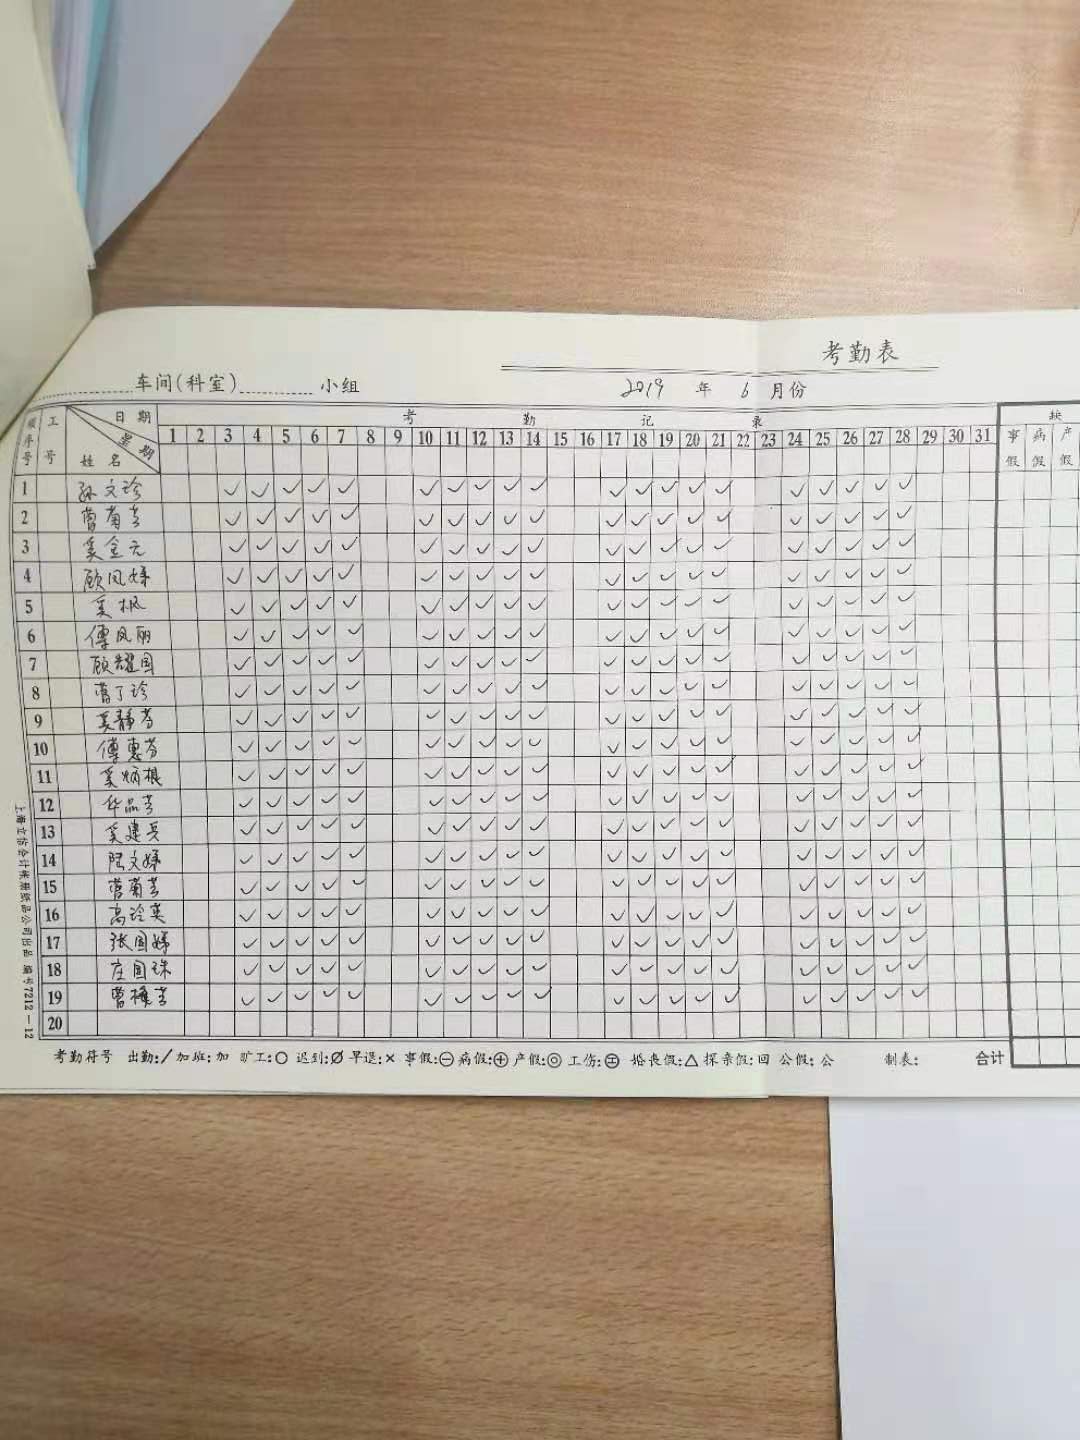 考勤表
车间(科室) 小组 2019 年 6 月份
顺序号 工号 日期 星期 姓名 考勤记录 缺
1 2 3 4 5 6 7 8 9 10 11 12 13 14 15 16 17 18 19 20 21 22 23 24 25 26 27 28 29 30 31 事假 病假 产假
1 孙文珍 ✓ ✓ ✓ ✓ ✓ ✓ ✓ ✓ ✓ ✓ ✓ ✓ ✓ ✓ ✓ ✓ ✓ ✓ ✓ ✓
2 曹菊芳 ✓ ✓ ✓ ✓ ✓ ✓ ✓ ✓ ✓ ✓ ✓ ✓ ✓ ✓ ✓ ✓ ✓ ✓ ✓ ✓
3 奚金元 ✓ ✓ ✓ ✓ ✓ ✓ ✓ ✓ ✓ ✓ ✓ ✓ ✓ ✓ ✓ ✓ ✓ ✓ ✓ ✓
4 顾凤娣 ✓ ✓ ✓ ✓ ✓ ✓ ✓ ✓ ✓ ✓ ✓ ✓ ✓ ✓ ✓ ✓ ✓ ✓ ✓ ✓
5 奚枫 ✓ ✓ ✓ ✓ ✓ ✓ ✓ ✓ ✓ ✓ ✓ ✓ ✓ ✓ ✓ ✓ ✓ ✓ ✓ ✓
6 傅凤丽 ✓ ✓ ✓ ✓ ✓ ✓ ✓ ✓ ✓ ✓ ✓ ✓ ✓ ✓ ✓ ✓ ✓ ✓ ✓ ✓
7 顾耀国 ✓ ✓ ✓ ✓ ✓ ✓ ✓ ✓ ✓ ✓ ✓ ✓ ✓ ✓ ✓ ✓ ✓ ✓ ✓ ✓
8 曹丁珍 ✓ ✓ ✓ ✓ ✓ ✓ ✓ ✓ ✓ ✓ ✓ ✓ ✓ ✓ ✓ ✓ ✓ ✓ ✓ ✓
9 奚静芬 ✓ ✓ ✓ ✓ ✓ ✓ ✓ ✓ ✓ ✓ ✓ ✓ ✓ ✓ ✓ ✓ ✓ ✓ ✓ ✓
10 傅惠芬 ✓ ✓ ✓ ✓ ✓ ✓ ✓ ✓ ✓ ✓ ✓ ✓ ✓ ✓ ✓ ✓ ✓ ✓ ✓ ✓
11 奚炳根 ✓ ✓ ✓ ✓ ✓ ✓ ✓ ✓ ✓ ✓ ✓ ✓ ✓ ✓ ✓ ✓ ✓ ✓ ✓ ✓
12 华品芳 ✓ ✓ ✓ ✓ ✓ ✓ ✓ ✓ ✓ ✓ ✓ ✓ ✓ ✓ ✓ ✓ ✓ ✓ ✓ ✓
13 奚建 ✓ ✓ ✓ ✓ ✓ ✓ ✓ ✓ ✓ ✓ ✓ ✓ ✓ ✓ ✓ ✓ ✓ ✓ ✓ ✓
14 陆文娣 ✓ ✓ ✓ ✓ ✓ ✓ ✓ ✓ ✓ ✓ ✓ ✓ ✓ ✓ ✓ ✓ ✓ ✓ ✓ ✓
15 曹菊芳 ✓ ✓ ✓ ✓ ✓ ✓ ✓ ✓ ✓ ✓ ✓ ✓ ✓ ✓ ✓ ✓ ✓ ✓ ✓ ✓
16 高玲英 ✓ ✓ ✓ ✓ ✓ ✓ ✓ ✓ ✓ ✓ ✓ ✓ ✓ ✓ ✓ ✓ ✓ ✓ ✓ ✓
17 张国娣 ✓ ✓ ✓ ✓ ✓ ✓ ✓ ✓ ✓ ✓ ✓ ✓ ✓ ✓ ✓ ✓ ✓ ✓ ✓ ✓
18 庄国珠 ✓ ✓ ✓ ✓ ✓ ✓ ✓ ✓ ✓ ✓ ✓ ✓ ✓ ✓ ✓ ✓ ✓ ✓ ✓ ✓
19 曹梅芳 ✓ ✓ ✓ ✓ ✓ ✓ ✓ ✓ ✓ ✓ ✓ ✓ ✓ ✓ ✓ ✓ ✓ ✓ ✓ ✓
20
考勤符号 出勤:/ 加班:加 旷工:○ 迟到:Ø 早退:× 事假:⊖ 病假:⊕ 产假:◎ 工伤:㊣ 婚丧假:△ 探亲假:回 公假:公 制表: 合计
上海立信会计账册纸品公司出品 编号7212-12